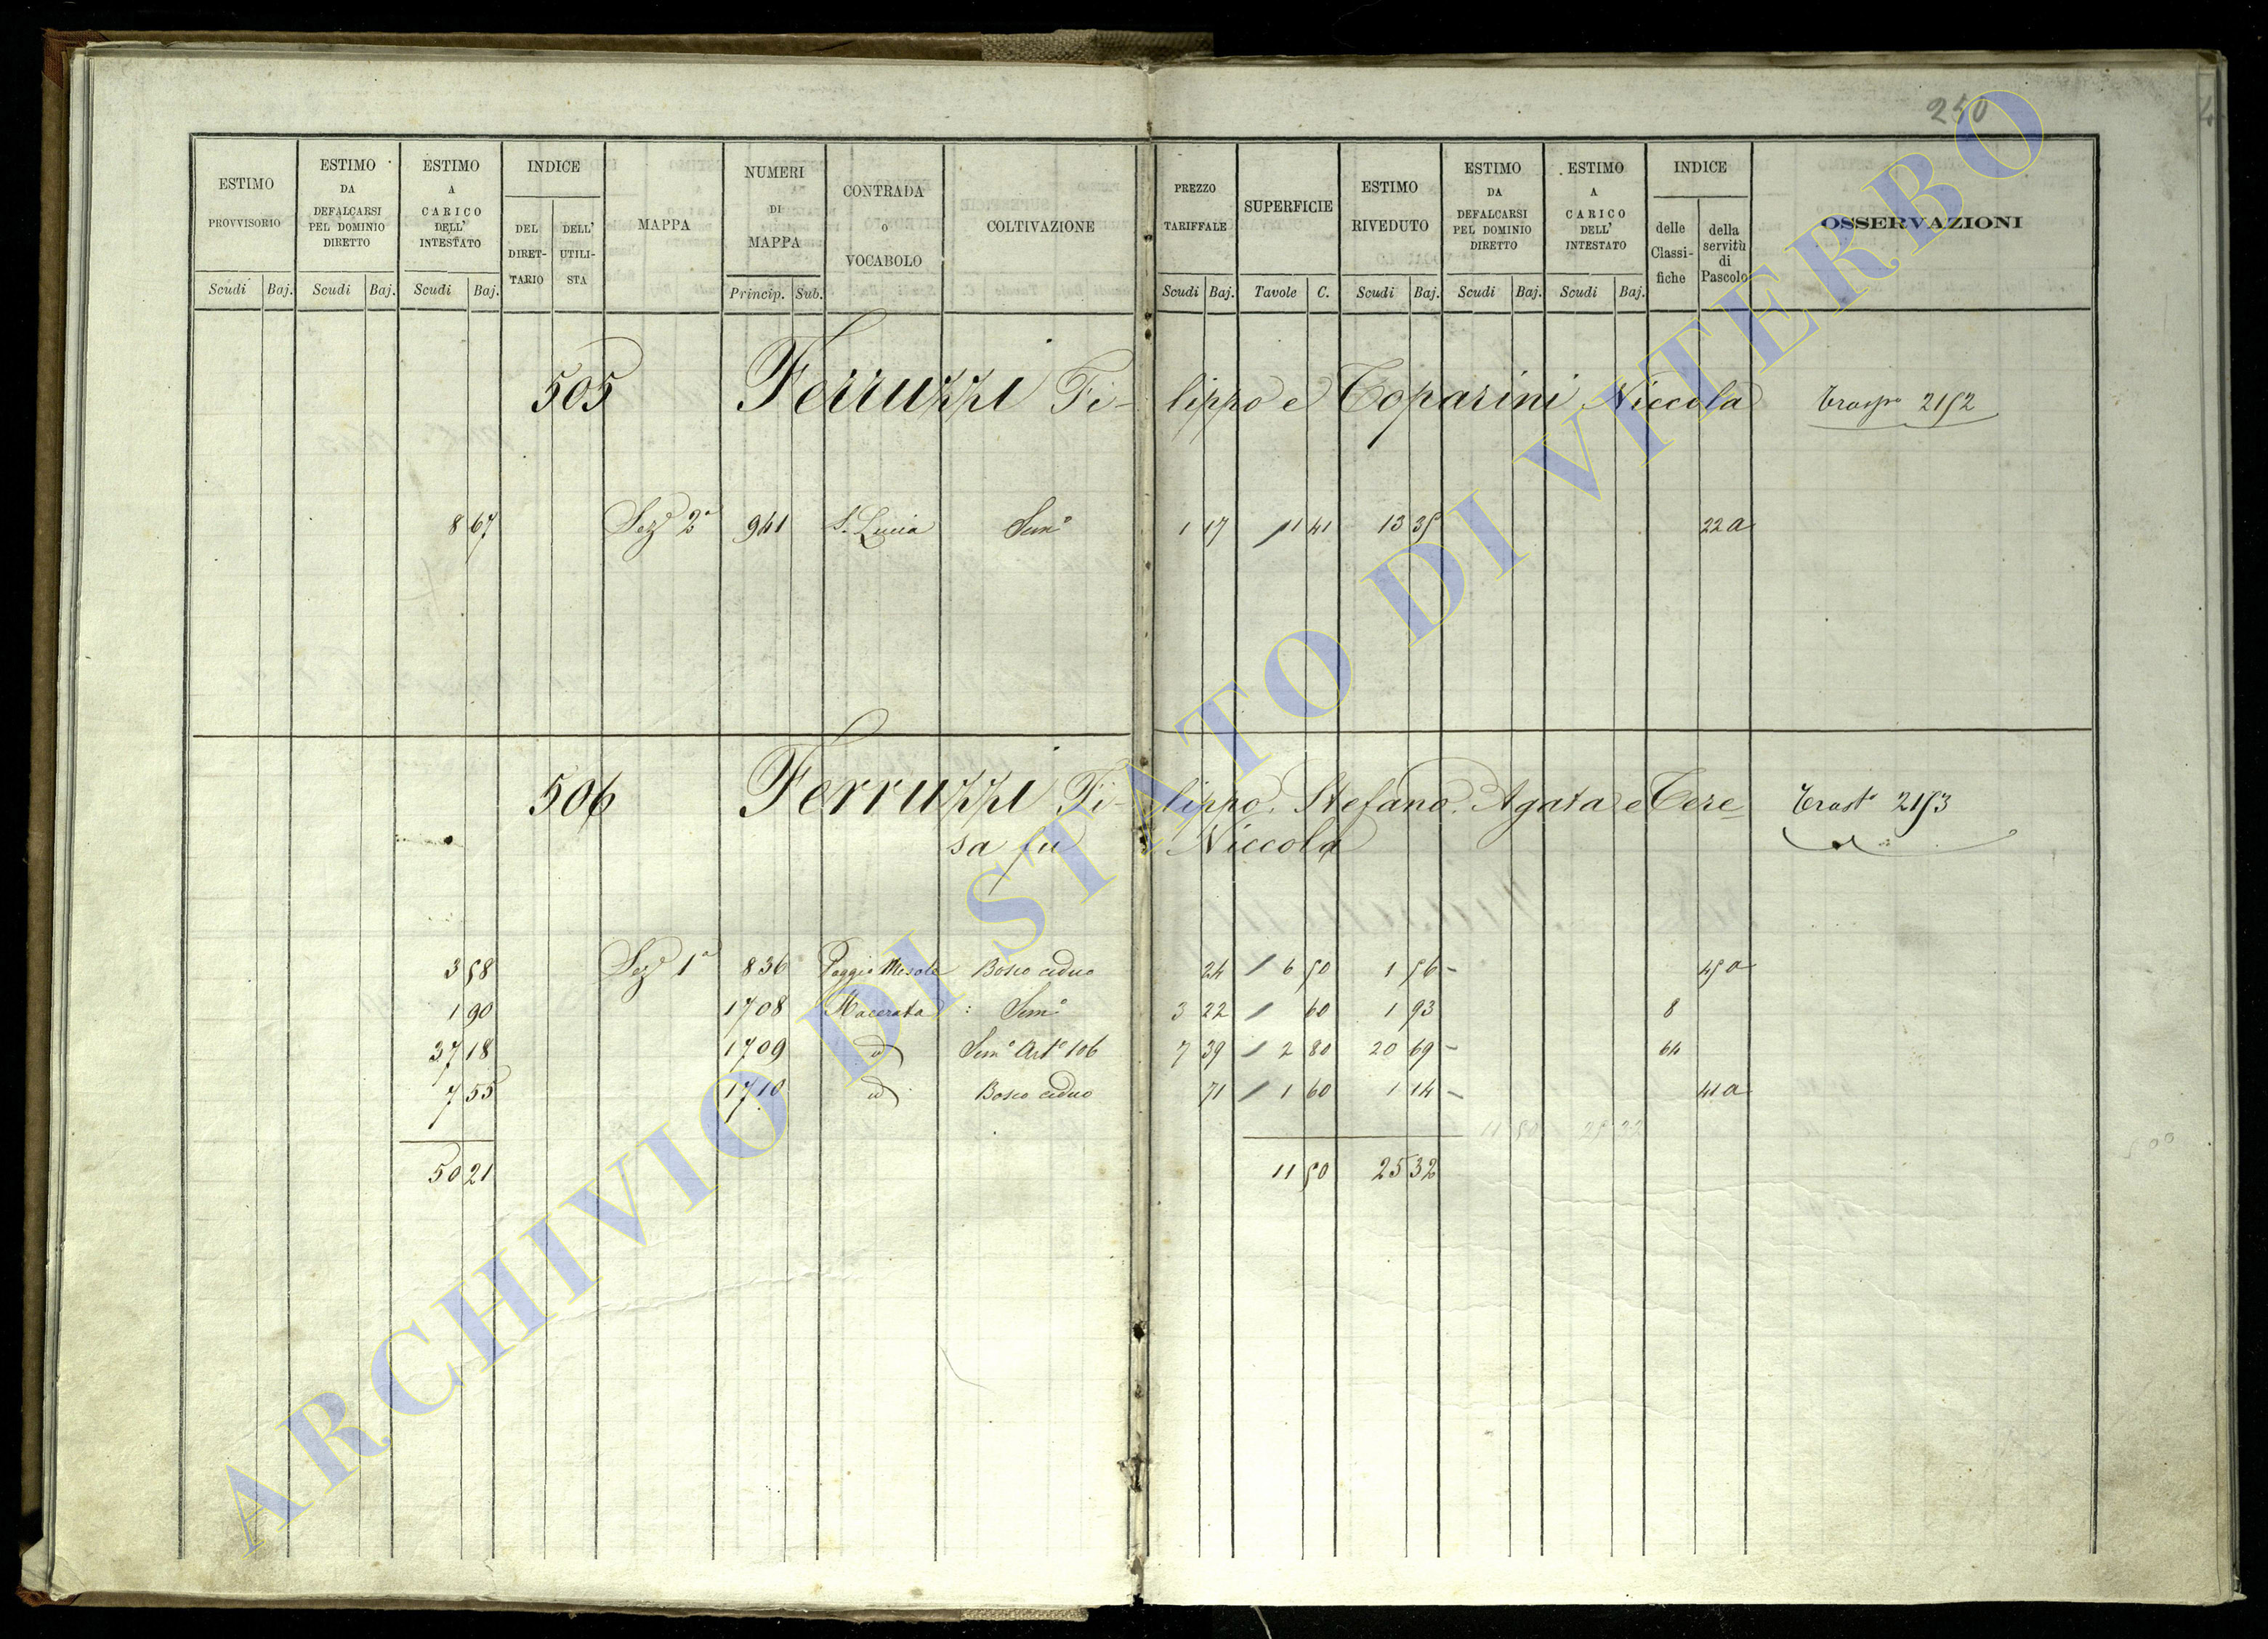 250
ESTIMO PROVVISORIO
Scudi Baj.
ESTIMO DA DEFALCARSI PEL DOMINIO DIRETTO
Scudi Baj.
ESTIMO A CARICO DELL' INTESTATO
Scudi Baj.
INDICE
DEL DIRET-TARIO
DELL' UTILI-STA
MAPPA
NUMERI DI MAPPA
Princip. Sub.
CONTRADA o VOCABOLO
COLTIVAZIONE
PREZZO TARIFFALE
Scudi Baj.
SUPERFICIE
Tavole C.
ESTIMO RIVEDUTO
Scudi Baj.
ESTIMO DA DEFALCARSI PEL DOMINIO DIRETTO
Scudi Baj.
ESTIMO A CARICO DELL' INTESTATO
Scudi Baj.
INDICE
delle Classi-fiche
della servitù di Pascolo
OSSERVAZIONI
505 Ferruzzi Fi- lippo e Toparini Niccola 2152
8 67 Sez.e 2a 941 S. Lucia Sem.o 1 17 11 41 13 35 22 a
506 Ferruzzi Fi- lippo. Stefano. Agata e Tere= 2153
sa fu Niccola
3 58 Sez.e 1a 836 Poggio Bosco ceduo 24 6 50 1 56 45 a
1 90 1708 Macerata Sem.o 3 22 60 1 93 8
37 18 1709 id Sem.o Art.o 106 7 39 2 80 20 69 64
7 55 1710 id Bosco ceduo 71 1 60 1 14 41 a
11 50 25 32
50 21 11 50 25 32
ARCHIVIO DI STATO DI VITERBO